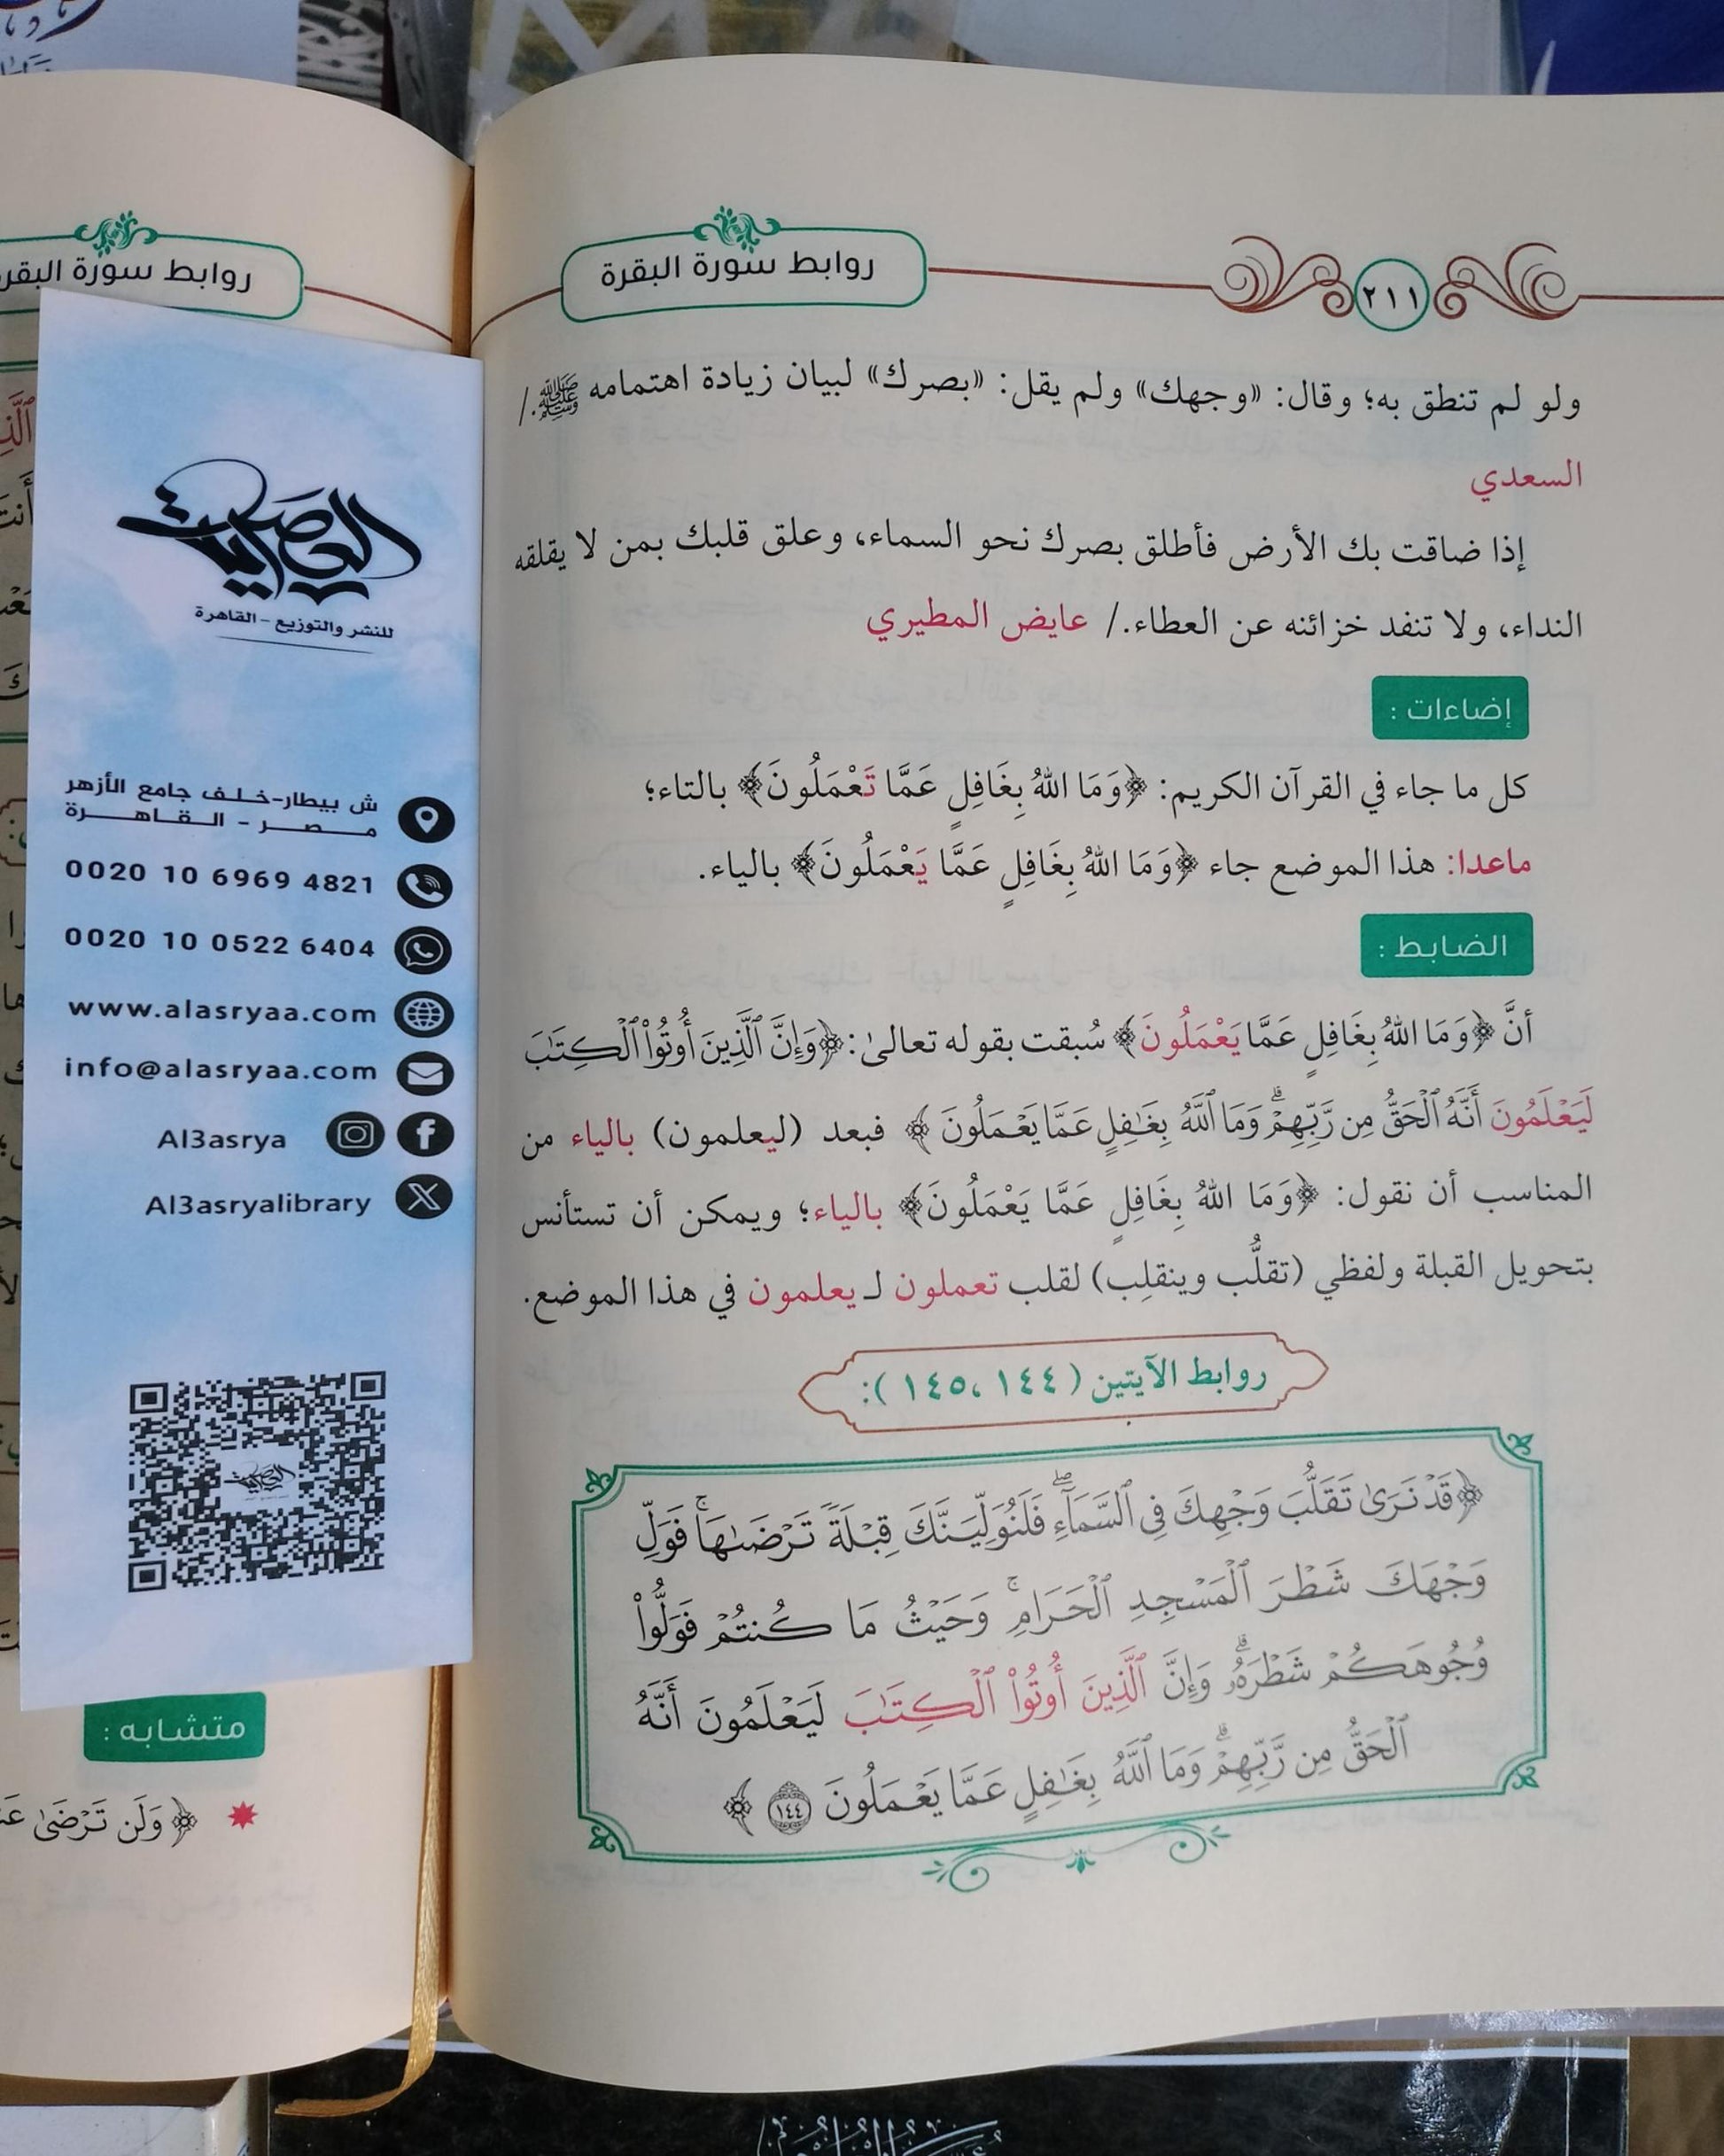 روابط سورة البقرة
٢١١
ولو لم تنطق به؛ وقال: «وجهك» ولم يقل: «بصرك» لبيان زيادة اهتمامه ﷺ./
السعدي
إذا ضاقت بك الأرض فأطلق بصرك نحو السماء، وعلق قلبك بمن لا يقلقه
النداء، ولا تنفد خزائنه عن العطاء./ عايض المطيري
إضاءات :
كل ما جاء في القرآن الكريم: ﴿وَمَا اللهُ بِغَافِلٍ عَمَّا تَعْمَلُونَ﴾ بالتاء؛
ماعدا: هذا الموضع جاء ﴿وَمَا اللهُ بِغَافِلٍ عَمَّا يَعْمَلُونَ﴾ بالياء.
الضابط :
أنَّ ﴿وَمَا اللهُ بِغَافِلٍ عَمَّا يَعْمَلُونَ﴾ سُبقت بقوله تعالىٰ: ﴿وَإِنَّ ٱلَّذِينَ أُوتُواْ ٱلْكِتَٰبَ
لَيَعْلَمُونَ أَنَّهُ ٱلْحَقُّ مِن رَّبِّهِمْۗ وَمَا ٱللَّهُ بِغَٰفِلٍ عَمَّا يَعْمَلُونَ ﴾ فبعد (ليعلمون) بالياء من
المناسب أن نقول: ﴿وَمَا اللهُ بِغَافِلٍ عَمَّا يَعْمَلُونَ﴾ بالياء؛ ويمكن أن تستأنس
بتحويل القبلة ولفظي (تقلُّب وينقلِب) لقلب تعملون لـ يعلمون في هذا الموضع.
روابط الآيتين ( ١٤٤ ،١٤٥ ):
﴿قَدْ نَرَىٰ تَقَلُّبَ وَجْهِكَ فِي ٱلسَّمَآءِۖ فَلَنُوَلِّيَنَّكَ قِبْلَةً تَرْضَىٰهَاۚ فَوَلِّ
وَجْهَكَ شَطْرَ ٱلْمَسْجِدِ ٱلْحَرَامِۚ وَحَيْثُ مَا كُنتُمْ فَوَلُّواْ
وُجُوهَكُمْ شَطْرَهُۥۗ وَإِنَّ ٱلَّذِينَ أُوتُواْ ٱلْكِتَٰبَ لَيَعْلَمُونَ أَنَّهُ
ٱلْحَقُّ مِن رَّبِّهِمْۗ وَمَا ٱللَّهُ بِغَٰفِلٍ عَمَّا يَعْمَلُونَ ١٤٤ ﴾
روابط سورة البقر
العصرية
للنشر والتوزيع - القاهرة
ش بيطار-خلف جامع الأزهر
مصر - القاهرة
0020 10 6969 4821
0020 10 0522 6404
www.alasryaa.com
info@alasryaa.com
Al3asrya
Al3asryalibrary
متشابه :
﴿وَلَن تَرْضَىٰ